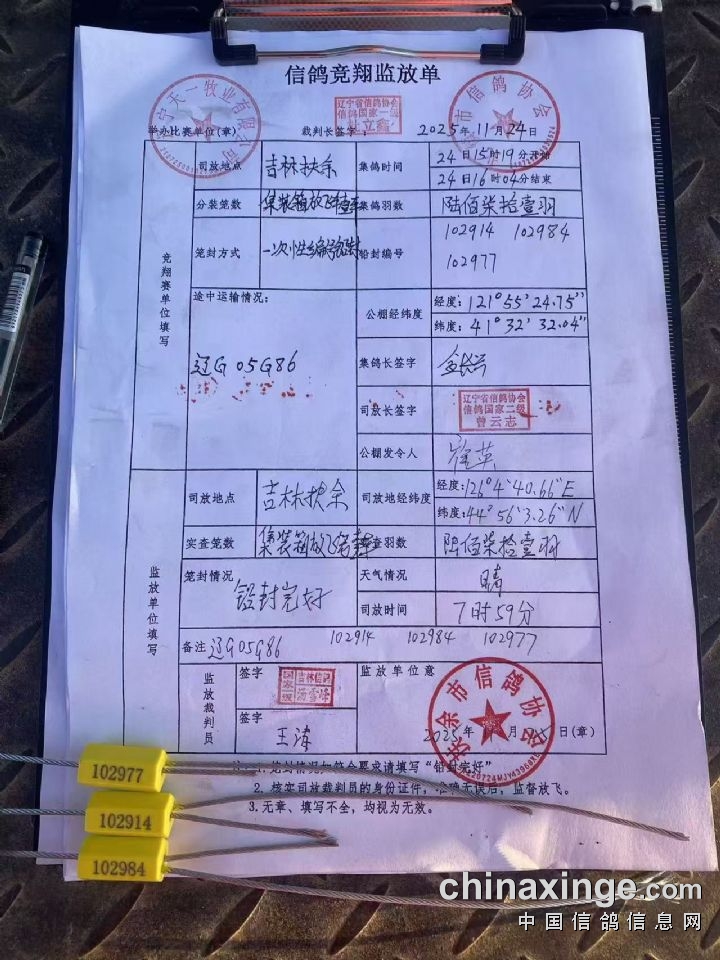 信鸽竞翔监放单
辽宁天一牧业有限公司
信鸽协会
辽宁省信鸽协会
信鸽国家一级
举办比赛单位(章) 裁判长签字: 2025年11月24日
竞翔赛单位填写
司放地点 吉林扶余 集鸽时间 24日15时19分开始
24日16时04分结束
分装笼数 集装箱放飞 集鸽羽数 陆佰柒拾壹羽
笼封方式 一次性编号铅封 铅封编号 102914 102984
102977
途中运输情况: 辽G05G86
公棚经纬度 经度:121°55'24.75"
纬度:41°32'32.04"
集鸽长签字
司放长签字 辽宁省信鸽协会
信鸽国家二级
曾云志
公棚发令人 崔英
监放单位填写
司放地点 吉林扶余 司放地经纬度 经度:126°4'40.66"E
纬度:44°56'3.26"N
实查笼数 集装箱放飞 查羽数 陆佰柒拾壹羽
笼封情况 铅封完好 天气情况 晴
司放时间 7时59分
备注 辽G05G86 102914 102984 102977
监放裁判员 签字 国家一级 吉林信鸽
签字 王涛
监放单位意
2025年 月 日(章)
扶余市信鸽协会
注:1.笼封情况如符合要求请填写“铅封完好”
2.核实司放裁判员的身份证件,准确无误后,监督放飞。
3.无章、填写不全,均视为无效。
102977
102914
102984
chinaxinge.com
中国信鸽信息网